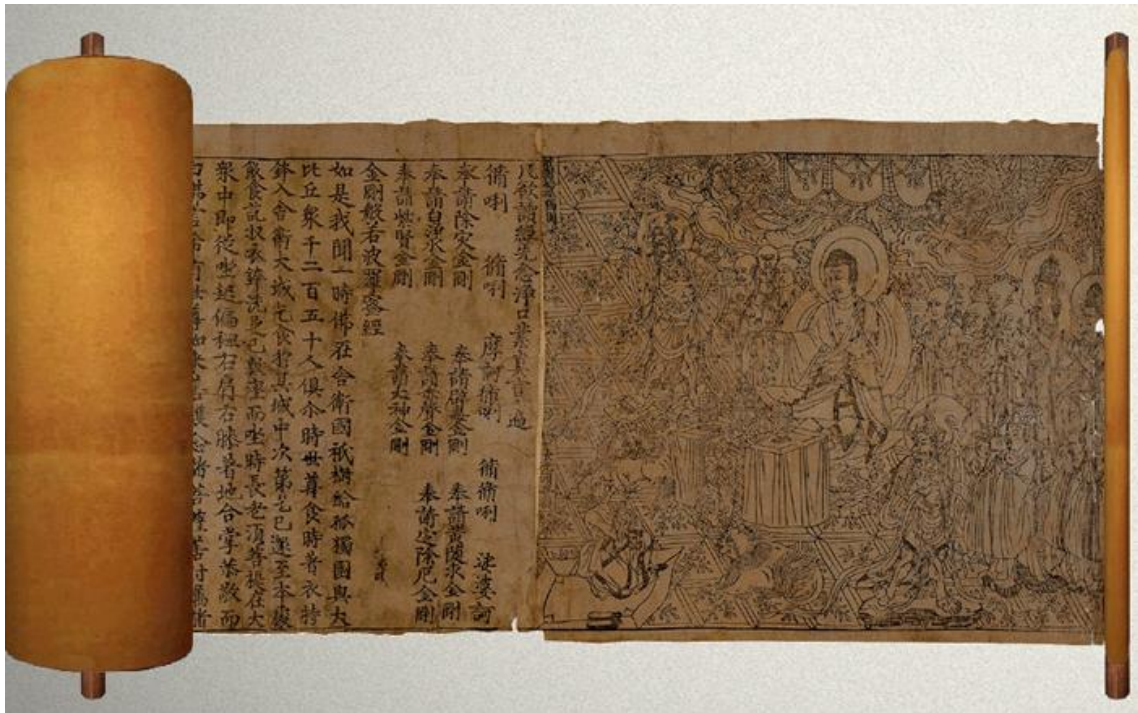 凡欲讀經先念淨口業真言一遍
脩唎 脩唎 摩訶脩唎 脩脩唎 娑婆訶
奉請除灾金剛 奉請辟毒金剛 奉請黃隨求金剛
奉請白淨水金剛 奉請赤聲金剛 奉請定除厄金剛
奉請紫賢金剛 奉請大神金剛
金剛般若波羅蜜經
如是我聞一時佛在舍衛國祇樹給孤獨園與大
比丘眾千二百五十人俱尒時世尊食時著衣持
鉢入舍衛大城乞食於其城中次第乞已還至本處
飯食訖收衣鉢洗足已敷座而坐時長老須菩提在大
眾中即從座起偏袒右肩右膝著地合掌恭敬而
白佛言希有世尊如來善護念諸菩薩善付囑諸